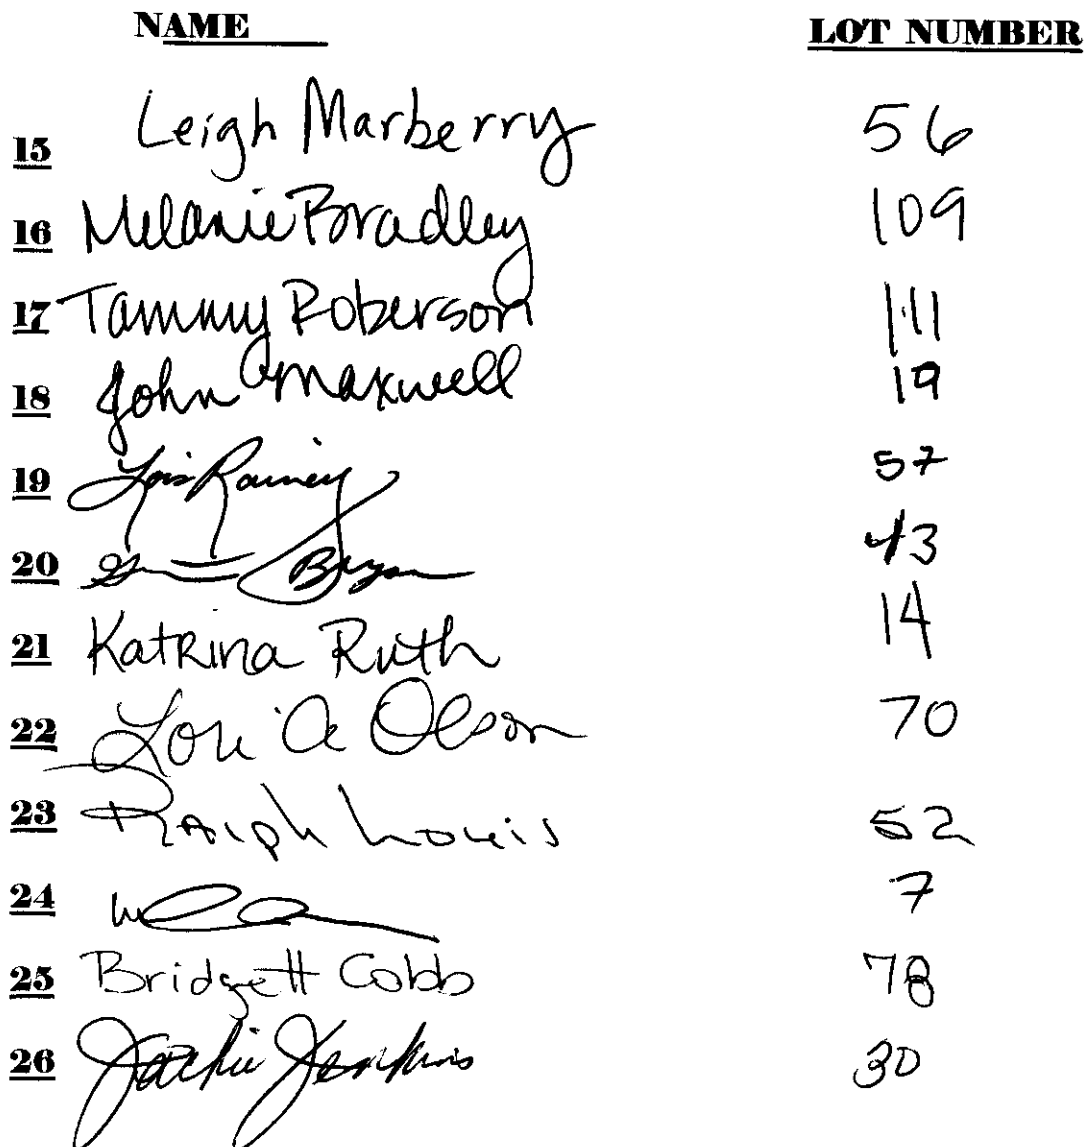 NAME LOT NUMBER
15 Leigh Marberry 56
16 Melanie Bradley 109
17 Tammy Roberson 111
18 John Maxwell 19
19 Lois Rainey 57
20 Bryan 43
21 Katrina Ruth 14
22 Lori A Olson 70
23 Ralph Louis 52
24 7
25 Bridgett Cobb 78
26 Jackie Jenkins 30